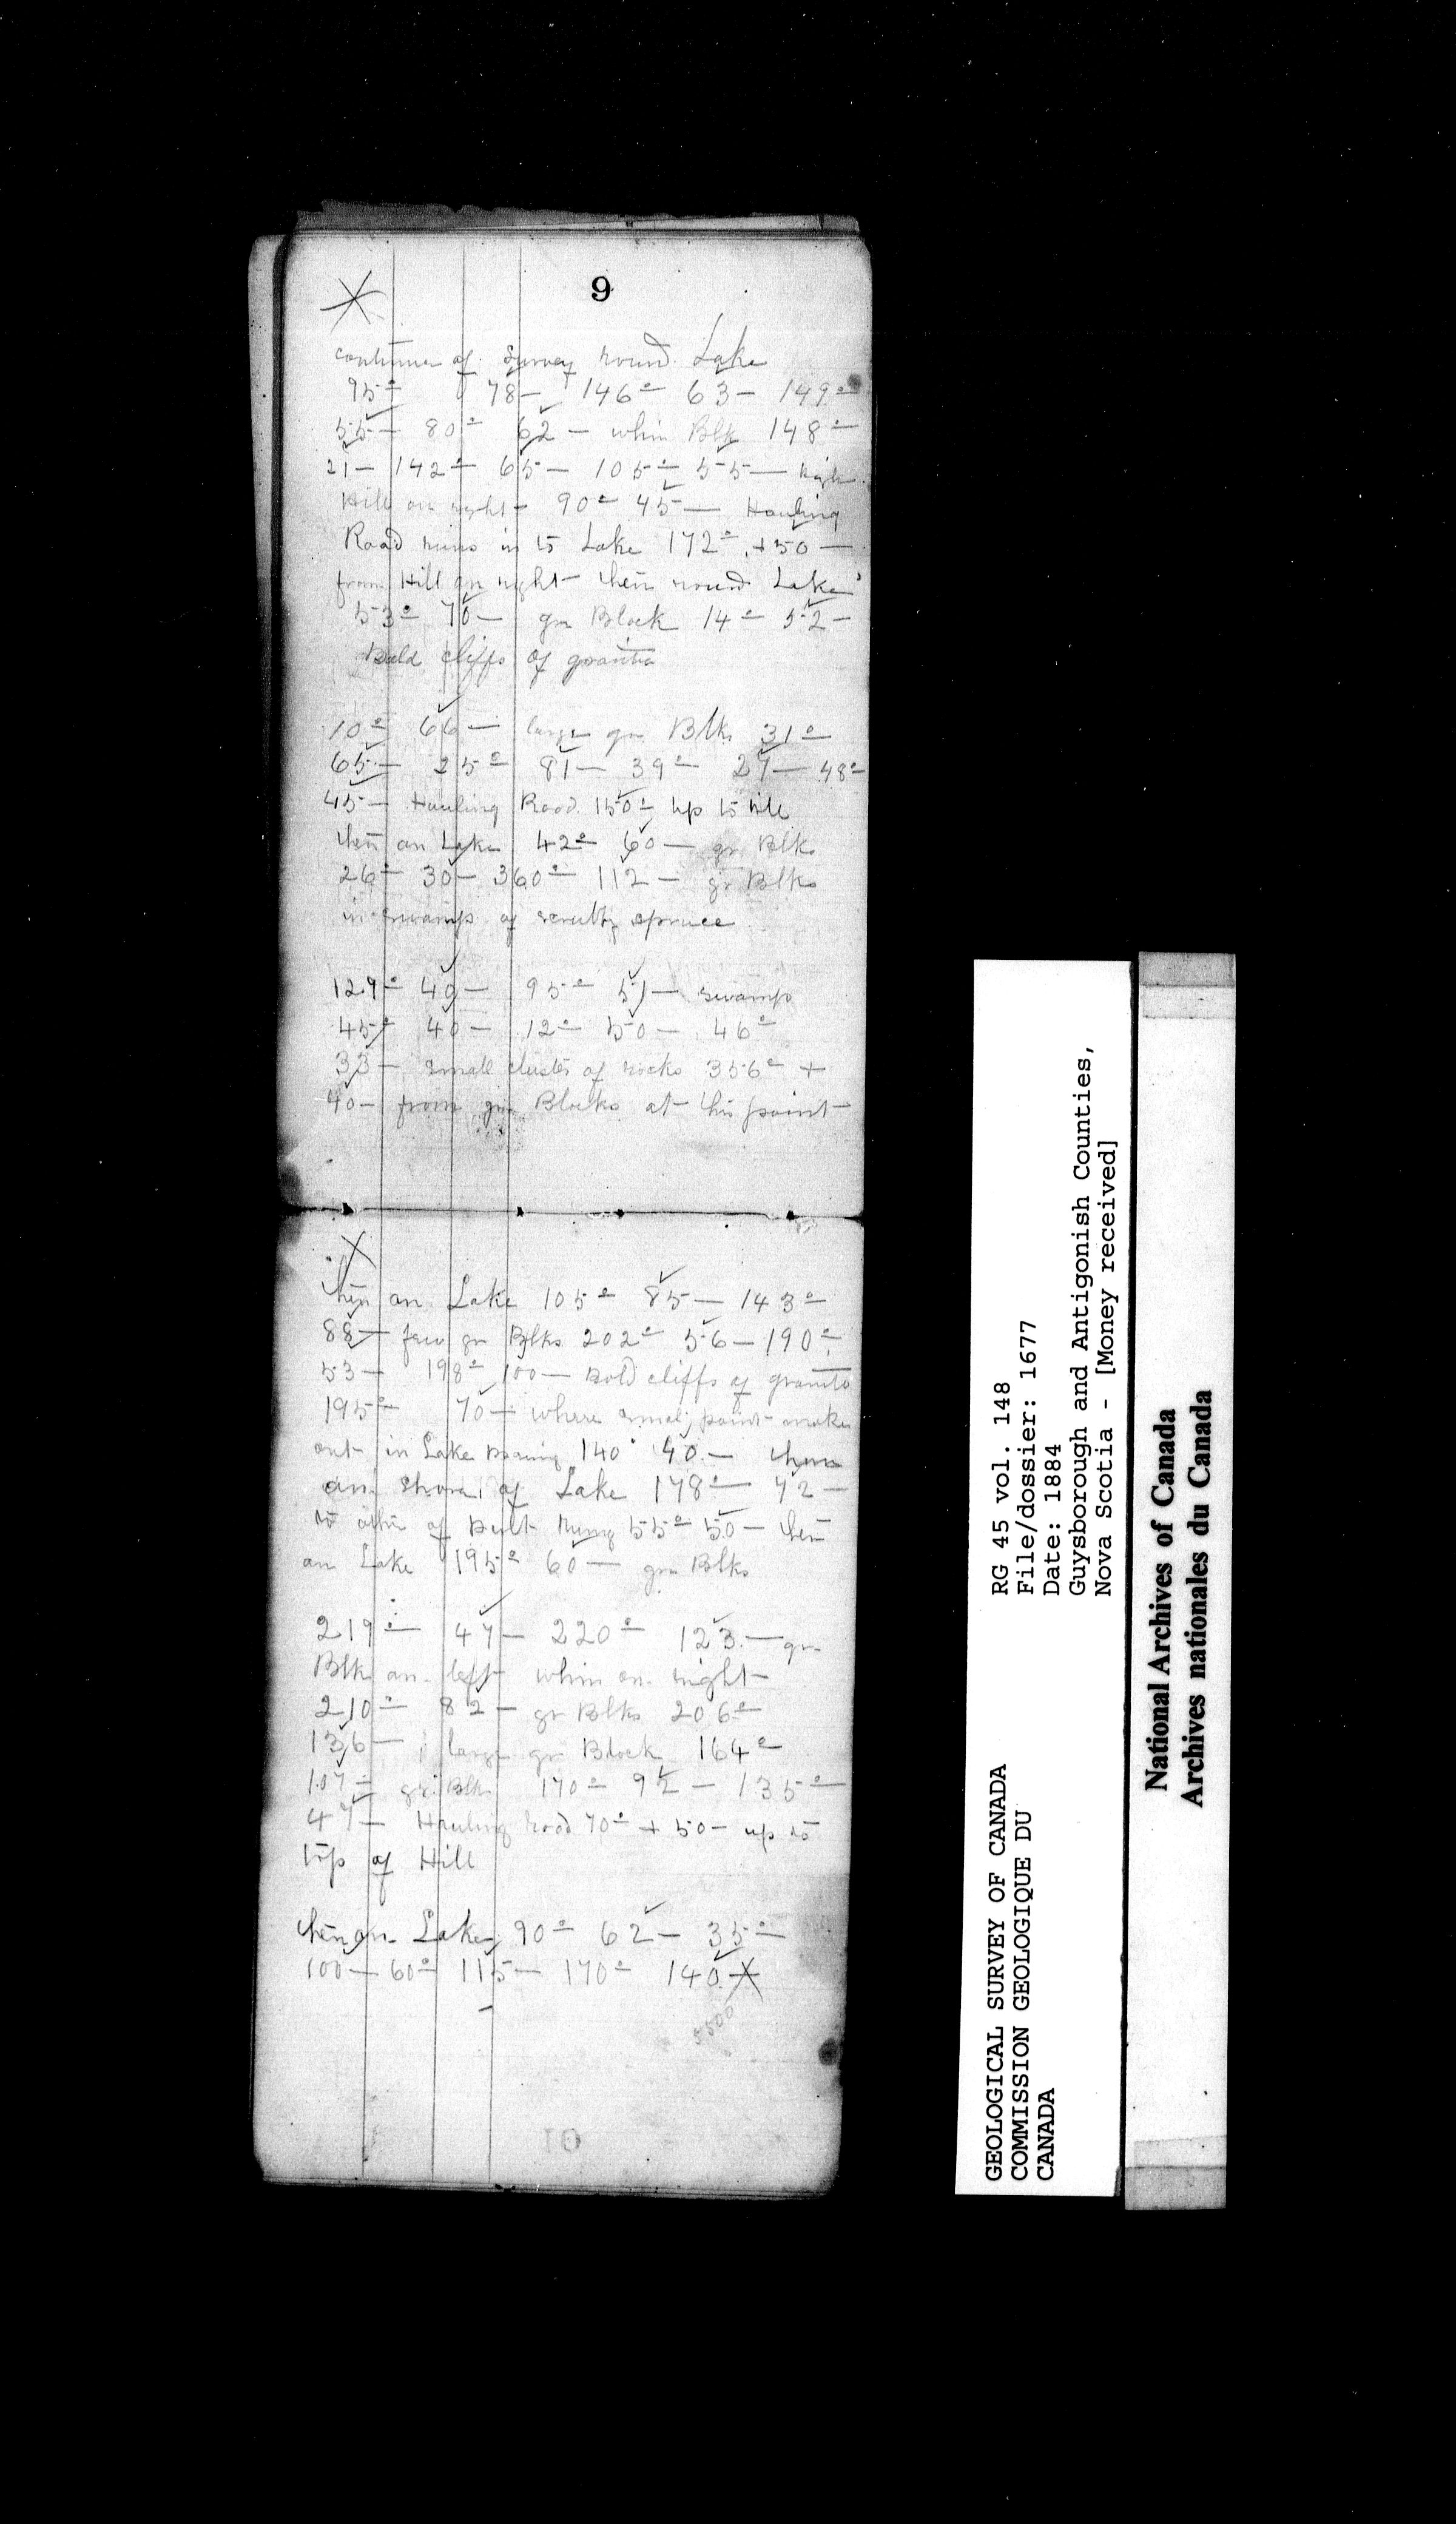 9
continuance of Survey round Lake
95° 78 — 146° 63 — 149°
55 — 80° 62 — whin Blk 148°
21 — 142° 65 — 105° 55 — high
Hill on right — 90° 45 — Hauling
Road runs in to Lake 172° + 50 —
from Hill on right — then round Lake
53° 70 — gr Block 14° 52 —
Bold cliffs of granite
10° 66 — large gr Blks 31°
65 — 25° 81 — 39° 27 — 48°
45 — Hauling Road 150° up to hill
then on Lake 42° 60 — gr Blks
26° 30 — 360° 112 — gr Blks
in swamp of scrubby spruce
129° 40 — 95° 51 — swamp
45° 40 — 12° 50 — 46°
33 — small cluster of rocks 356° +
40 — from gr Blocks at this point —
then on Lake 105° 85 — 143°
88 — few gr Blks 202° 56 — 190°
53 — 198° 100 — Bold cliffs of granite
195° 70 — where small point makes
out in Lake Bearing 140° 40 — then
on shore of Lake 178° 72 —
to other of 55° 50 — then
on Lake 195° 60 — gr Blks
219° 47 — 220° 123 — gr
Blk on left whin on right —
210° 82 — gr Blks 206°
136 — large gr Block 164°
107 — gr Blk 170° 92 — 135°
47 — Hauling road 70° + 50 — up to
top of Hill
then on Lake 90° 62 — 35°
100 — 60° 115 — 170° 140
GEOLOGICAL SURVEY OF CANADA
COMMISSION GEOLOGIQUE DU
CANADA
RG 45 vol. 148
File/dossier: 1677
Date: 1884
Guysborough and Antigonish Counties,
Nova Scotia - [Money received]
National Archives of Canada
Archives nationales du Canada